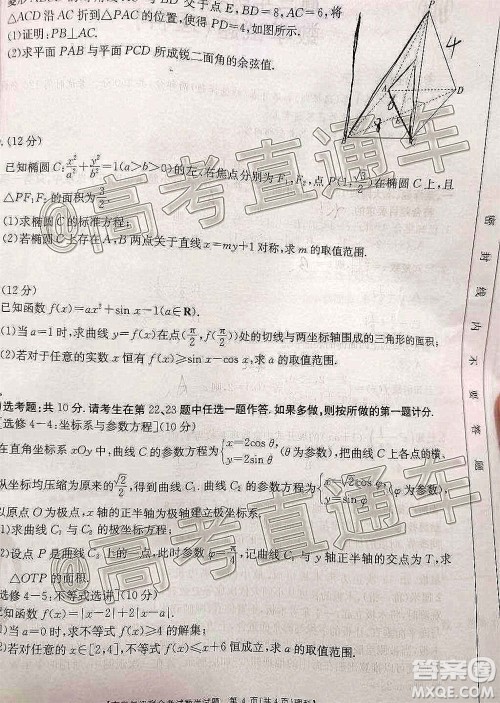 菱形ABCD的对角线AC与BD交于点E,BD=8,AC=6,将
△ACD沿AC折到△PAC的位置,使得PD=4,如图所示.
(1)证明:PB⊥AC.
(2)求平面PAB与平面PCD所成锐二面角的余弦值.
P
4
A
D
B
(12分)
已知椭圆C:x²/a²+y²/b²=1(a>b>0)的左、右焦点分别为F₁,F₂,点P(1,
)在椭圆C上,且
△PF₁F₂的面积为3/2.
(1)求椭圆C的标准方程;
(2)若椭圆C上存在A,B两点关于直线x=my+1对称,求m的取值范围.
(12分)
已知函数f(x)=ax²+sin x-1(a∈R).
(1)当a=1时,求曲线y=f(x)在点(π/2,f(π/2))处的切线与两坐标轴围成的三角形的面积;
(2)若对于任意的实数x恒有f(x)≥sin x-cos x,求a的取值范围.
选考题:共10分.请考生在第22、23题中任选一题作答.如果多做,则按所做的第一题计分.
[选修4-4:坐标系与参数方程](10分)
在直角坐标系xOy中,曲线C的参数方程为{x=2cosθ, y=2sinθ(θ为参数),把曲线C上各点的横、
纵坐标均压缩为原来的√2/2,得到曲线C₁.曲线C₂的参数方程为{x=√2cosφ, y=sinφ(φ为参数),
以原点O为极点,x轴的正半轴为极轴建立极坐标系.
(1)求曲线C₁与C₂的极坐标方程;
(2)设点P是曲线C₂上的一点,此时参数φ=π/4,记曲线C₁与y轴正半轴的交点为T,求
△OTP的面积.
[选修4-5:不等式选讲](10分)
已知函数f(x)=|x-2|+2|x-a|.
(1)当a=0时,求不等式f(x)≥4的解集;
(2)若对任意的x∈[2,4],不等式f(x)≤x+6恒成立,求a的取值范围.
第4页(共4页)理科
密封线内不要答题
@高考直通车
@高考直通车
@高考直通车
答案圈
MXQE.COM